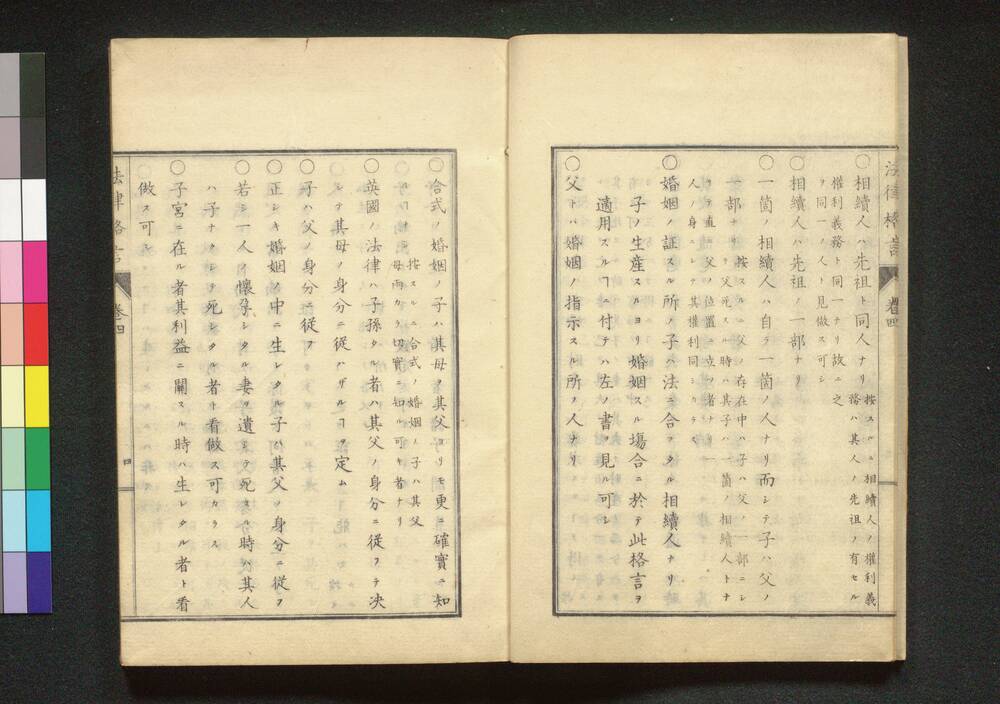 法律格言
卷四
〇相續人ハ先祖ト同人ナリ
按スルニ相續人ノ權利義
務ハ其人ノ先祖ノ有セル
權利義務ト同一ナリ故ニ之
ヲ同一ノ人ト見做ス可シ
〇相續人ハ先祖ノ一部ナリ
〇一箇ノ相續人ハ自ラ一箇ノ人ナリ而シテ子ハ父ノ
一部ナリ
按スルニ父ノ存在中ハ子ハ父ノ一部ニシ
テ父死スル時ハ其子ハ一箇ノ相續人トナ
リテ直ニ父ノ位置ニ立ツ者ナ
人ノ身ニシテ其權利同シカラス
〇婚姻ノ証スル所ノ子ハ法ニ合フタル相續人ナリ
子ノ生産スルヨリ婚姻スル塲合ニ於テ此格言ヲ
適用スルヿニ付テハ左ノ書ヲ見ル可シ
〇父トハ婚姻ノ指示スル所ノ人ナリ
〇合式ノ婚姻ノ子ハ其母ヲ其父ヨリモ更ニ確實ニ知
ルヿ
按スルニ合式ノ婚姻ノ子ハ其父
母兩カラ切實ニ知ル可キ者ナリ
〇英國ノ法律ハ子孫タル者ハ其父ノ身分ニ從フテ决
シテ其母ノ身分ニ從ハザルヿヲ定ム
〇子ハ父ノ身分ニ從フ
〇正シキ婚姻ノ中ニ生レタル子ハ其父ノ身分ニ從フ
〇若シ一人ノ懷孕シタル妻ヲ遺シテ死スル時ハ其人
ハ子ナクシテ死シタル者ト看做ス可カラス
〇子宮ニ在ル者其利益ニ關スル時ハ生レタル者ト看
做ス可シ
法律格言
卷四
四